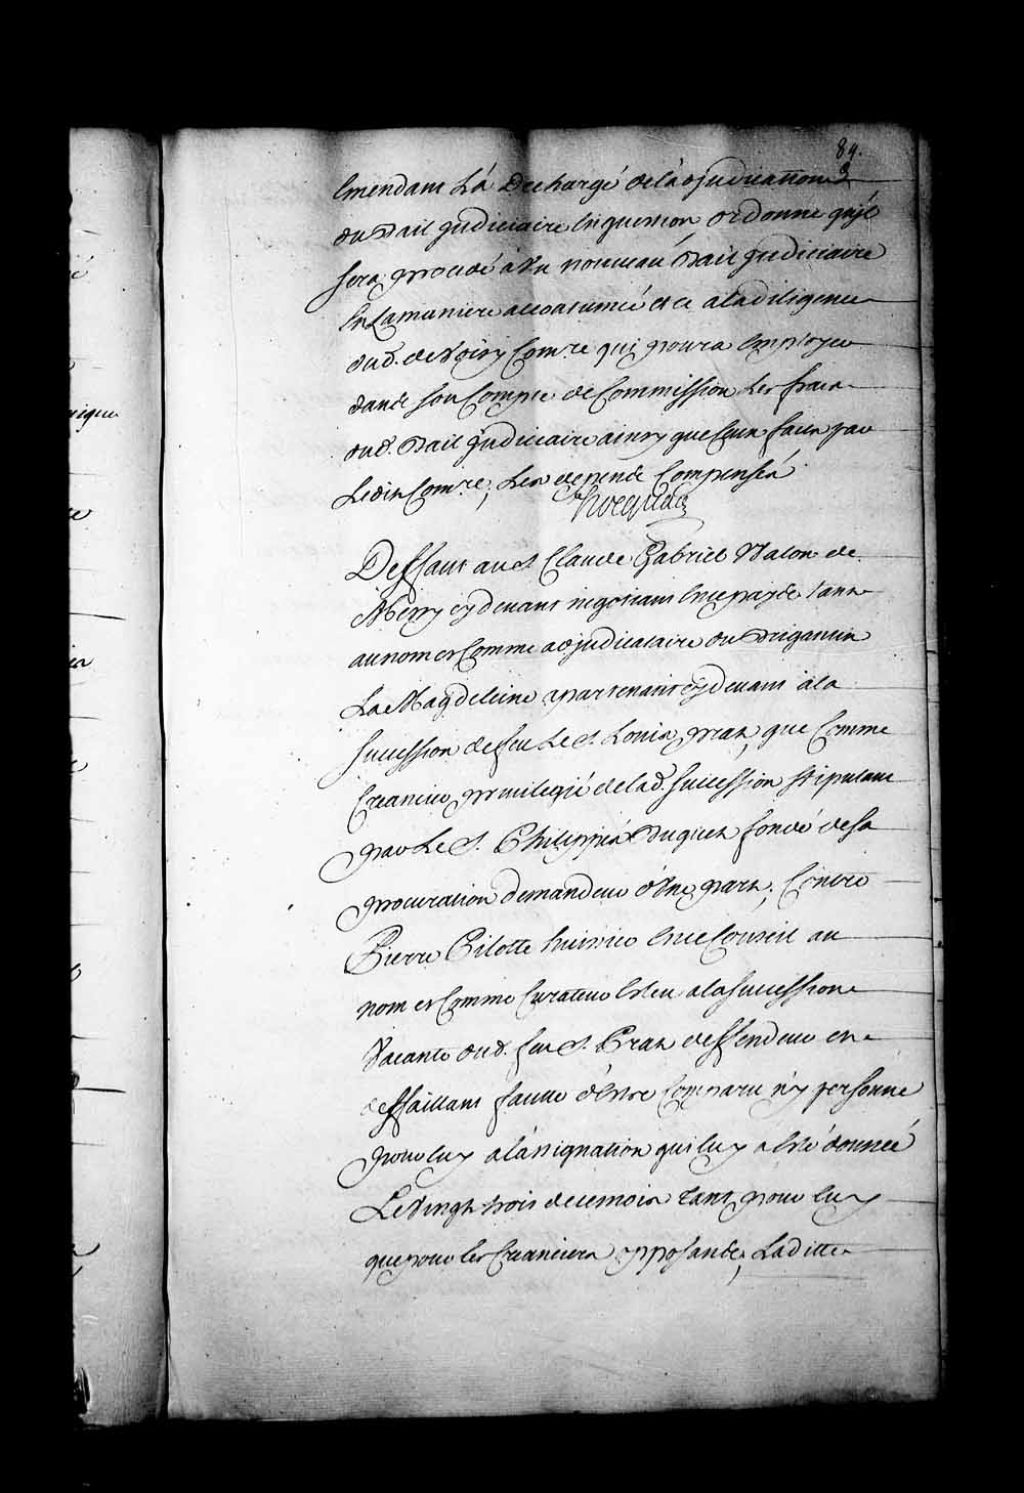 84.
Emendant L'a Dechargé de l'adjudication
du Bail judiciaire en question ordonne qu'il
sera procedé a Un nouveau Bail judiciaire
En La maniere accoutumée et ce a la diligence
dud. de Noiry Comre. qui poura Employer
dans son Compte de Commission Les frais
dud. Bail judiciaire ainsy que ceux faits par
Ledit Comre., Les depends Compensés
Hocquart
Deffaut au Sr. Claude Gabriel
cy devant negotiant En ce pays tant
au nom et Comme adjudicataire du Brigantin
La Magdeleine apartenant cy devant a la
succession de feu Le Sr. Louis Prat, que Comme
Creancier privilegié de lad. succession stipulant
par Le S. Philippe fondé de sa
procuration demandeur d'Une part, Contre
Pierre Pilotte huissier En ce Conseil au
nom et Comme Curateur Esleu a la succession
Vacante dud. feu S. Prat deffendeur et
deffaillant faute d'Estre Comparu n'y personne
pour luy a l'assignation qui luy a Esté donnée
Le Vingt trois de ce mois tant pour luy
que pour les Creanciers opposants, Laditte